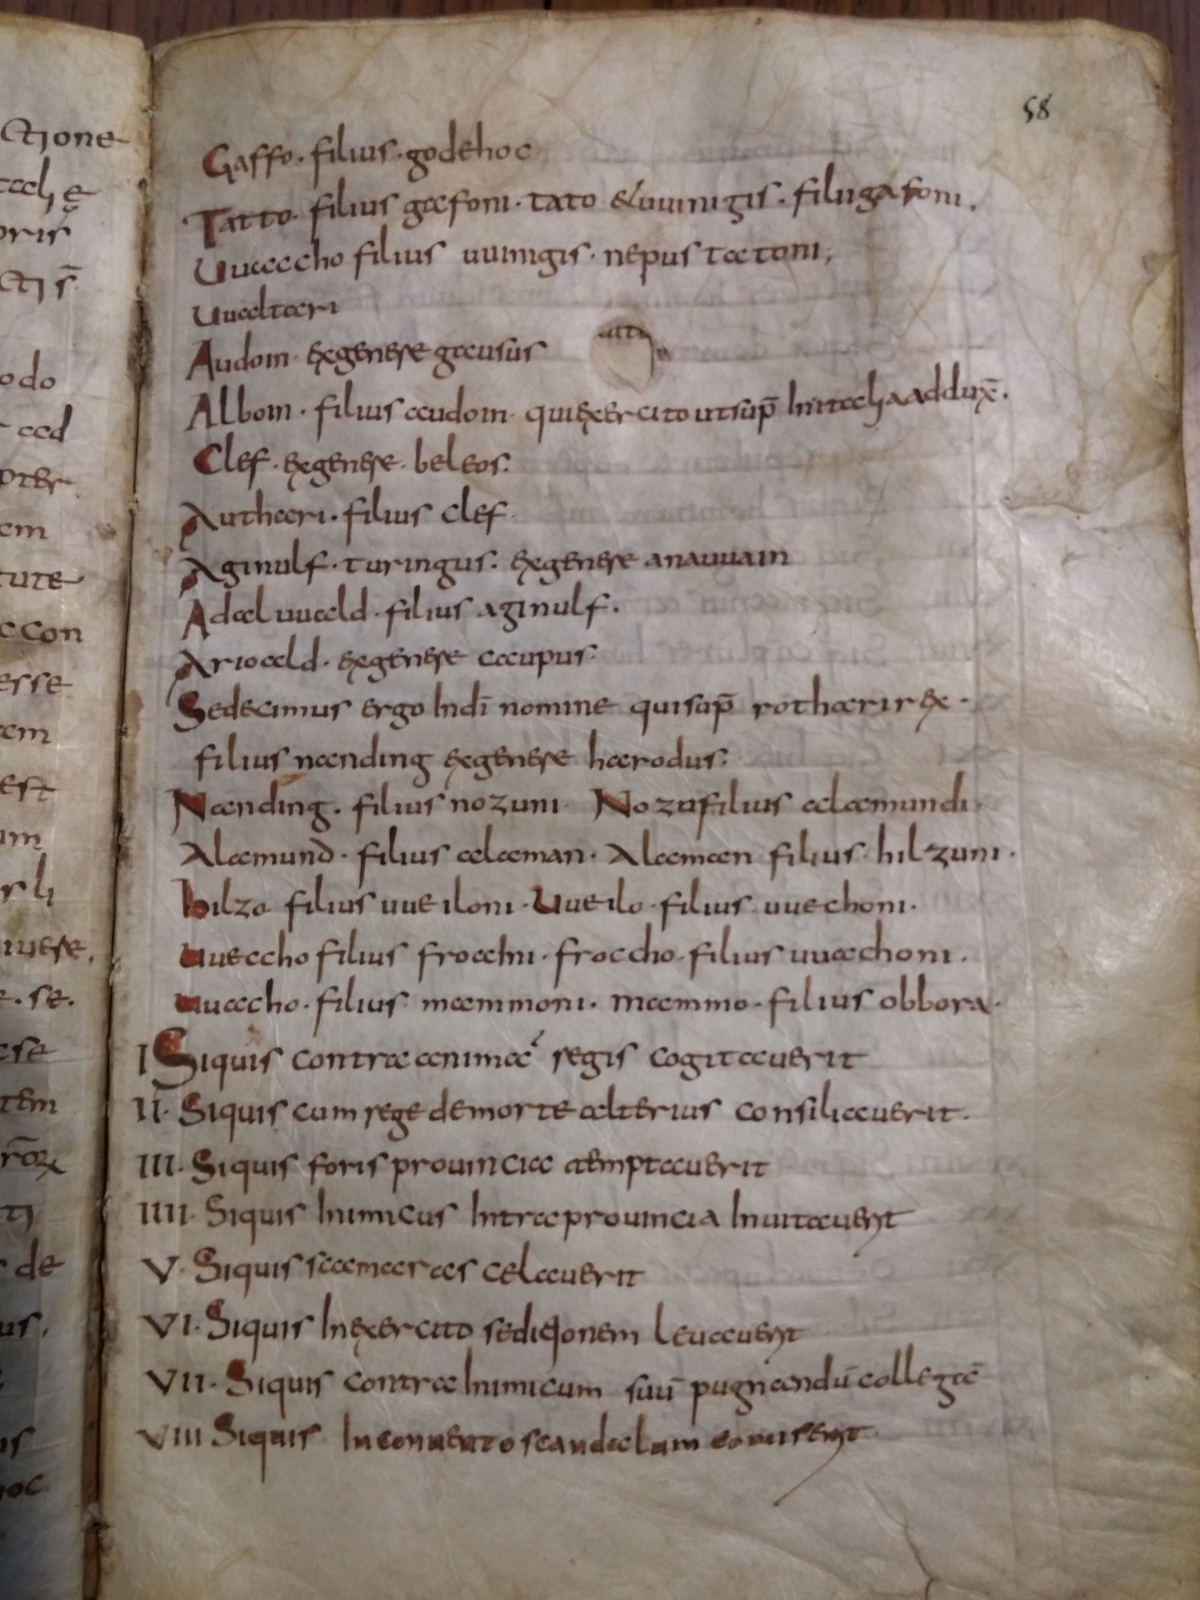 58
Gaffo. filius. godehoc
Tatto. filius gaffoni. tato & uuinigis. filii gaffoni.
Uuaccho filius uuinigis. nepus tatoni;
Uualtari
Audoin. exgenere gausus
Alboin. filius audoin. qui exercito ut sup̄ In italia adduxē.
Clef. exgenere. beleos.
Authari. filius clef
Aginulf. turingus. exgenere anauuain
Adaluuald. filius aginulf.
Arioald. exgenere caupus.
Sedecimus ergo Indī nomine qui sup̄ rotharir ex.
filius nanding exgenere harodus.
Nanding. filius nozuni Nozu filius alamundi.
Alamund. filius alaman. Alaman filius. hilzuni.
hilzo filius uueiloni. Uueilo. filius uuechoni.
Uueccho filius frocchi. froccho. filius uuachoni.
Uuaccho. filius mammoni. mammo. filius obbora.
I Siquis contra anima regis cogitauerit
II. Siquis cum rege demorte alterius consiliauerit.
III. Siquis foris prouincia temptauerit
IIII. Siquis Inimicus Intra prouincia Inuitauerit
V. Siquis scamaras celauerit
VI. Siquis In exercito seditionem leuauerit
VII. Siquis contra Inimicum suū pugnandū collegā
VIII Siquis In conuento scandalum comiserit
ctione
oris
odo
pter
em
tute
con
esse
em
est
um
r li
se.
tem
ti
de
us.
hoc